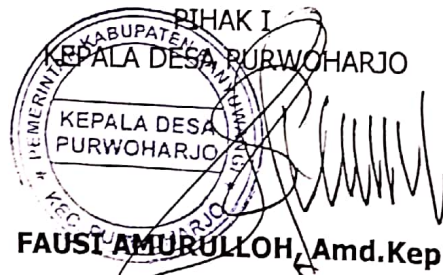 PIHAK I
KEPALA DESA PURWOHARJO
PEMERINTAH KABUPATEN BANYUWANGI
KEPALA DESA
PURWOHARJO
KEC. PURWOHARJO
FAUSI AMURULLOH, Amd.Kep